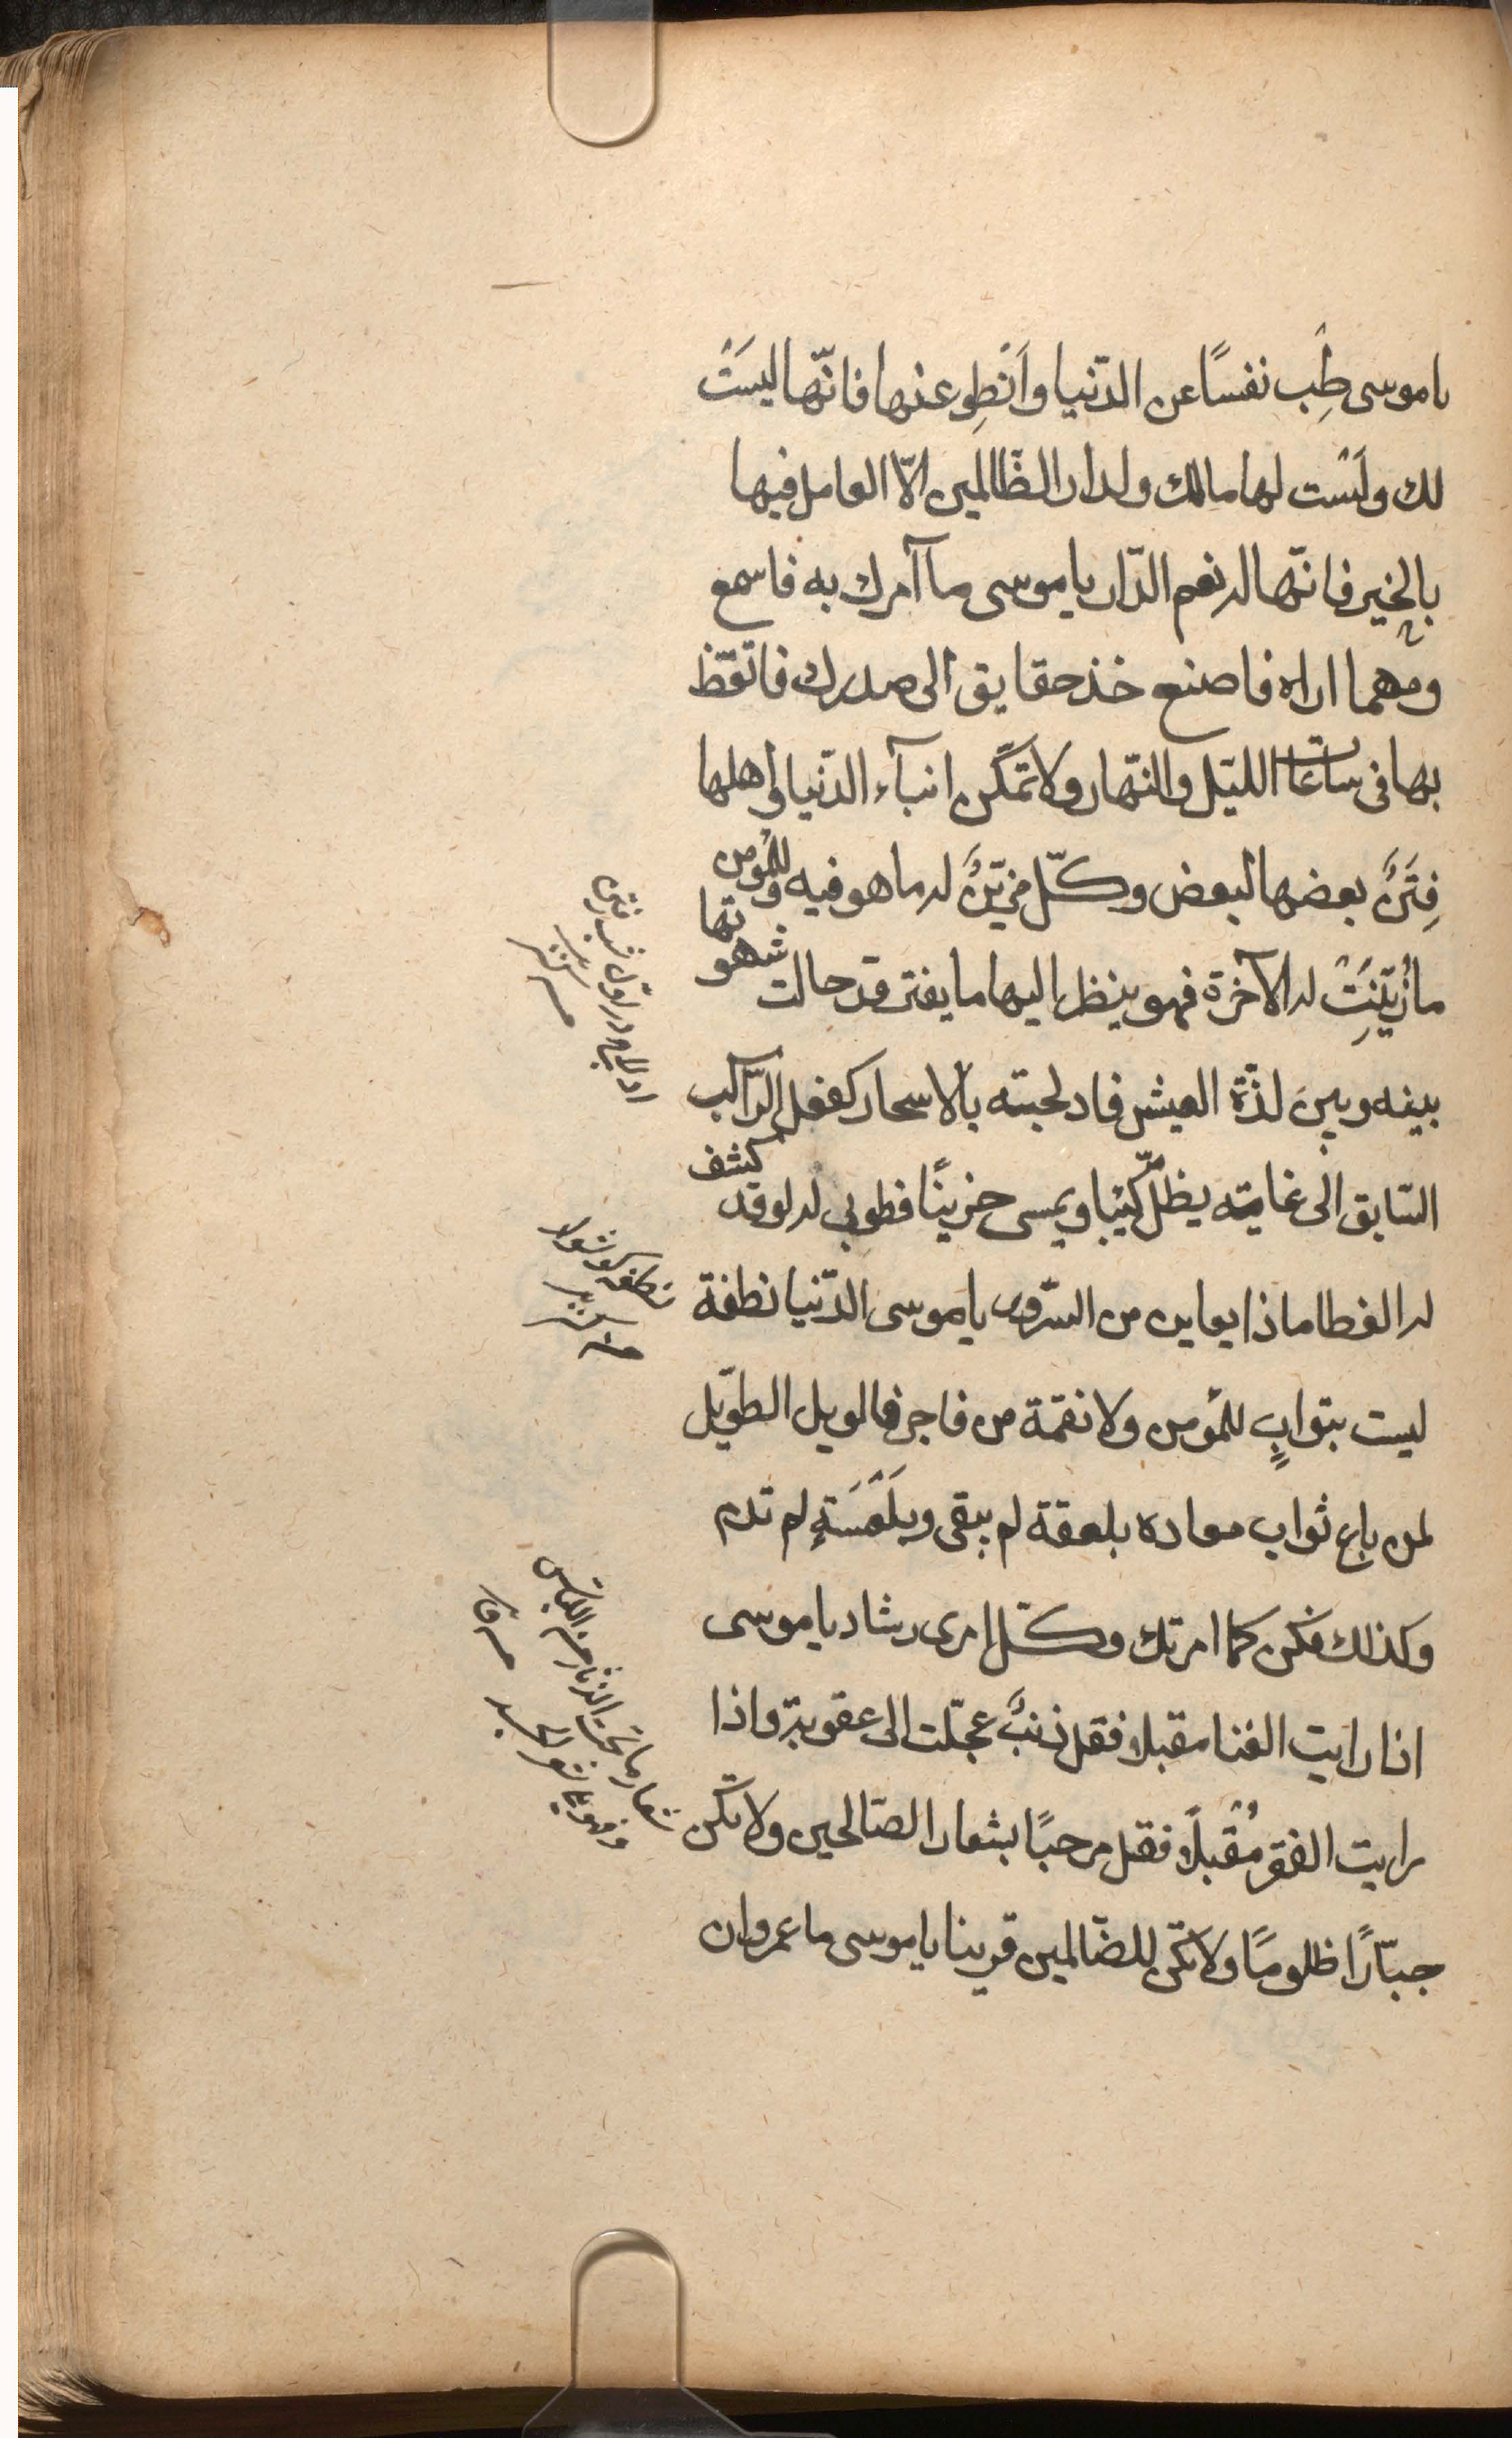 ياموسى طِب نفسًا عن الدّنيا وَانْطِو عنها فانّها ليسَتْ
لك ولَسْت لها مالك ولدار الظّالمين الّا العامل فيها
بالخير فانّها له نعم الدّار ياموسى ما آمرك به فاسمع
ومهما اراه فاصنع خذ حقايق الى صدرك فاتقّظ
بها فى ساعات الليّل والنّهار ولا تمكّن انبآء الدّنيا واهلها
فِتَنٌ بعضها لبعض وكلّ مزيّنٌ له ما هو فيه وللمؤمن
ما زُيّنَتْ له الآخرة فهو ينظر اليها ما يفتر قد حالت شهوتها
بينه وبين لذّة العيش فادلجته بالاسحار كفعل الرّاكب
السّابق الى غايته يظلّ كئيبا ويمسى حزينًا فطوبى له لو قد كشف
له الغطا ماذا يعاين من السّرور ياموسى الدّنيا نطفة
ليست بثوابٍ للمؤمن ولا نقمة من فاجر فالويل الطوّيل
لمن باع ثواب معاده بلعقة لم يبقى وبلَعْسَةٍ لم تدم
وكذلك فكن كما امرتك وكلّ امرى رشاد ياموسى
اذا رايت الغنا مقبلا فقل ذنبٌ عجّلت الى عقوبته واذا
رايت الفقر مُقْبلًا فقل مرحبًا بشعار الصّالحين ولا تكن
جبّارًا ظلومًا ولا تكن للضّالمين قرينا ياموسى ما عمر وان
شعار ما تحت الدثار من اللباس
وهو يلى شعر الجسد